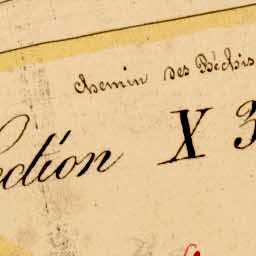 chemin des Béchis
ection X 3